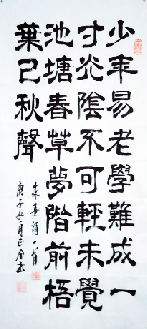 少年易老學難成一
寸光陰不可輕未覺
池塘春草夢階前梧
葉已秋聲
朱熹詩
庚子